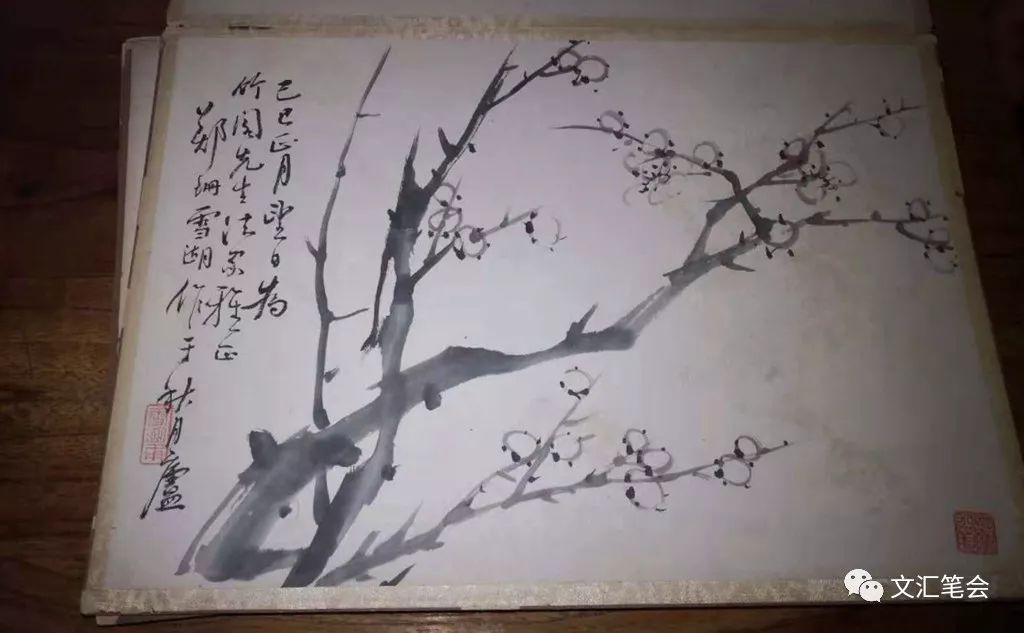 己巳正月望日为
竹阁先生法家雅正
郑珊雪湖作于秋月廬
文汇笔会